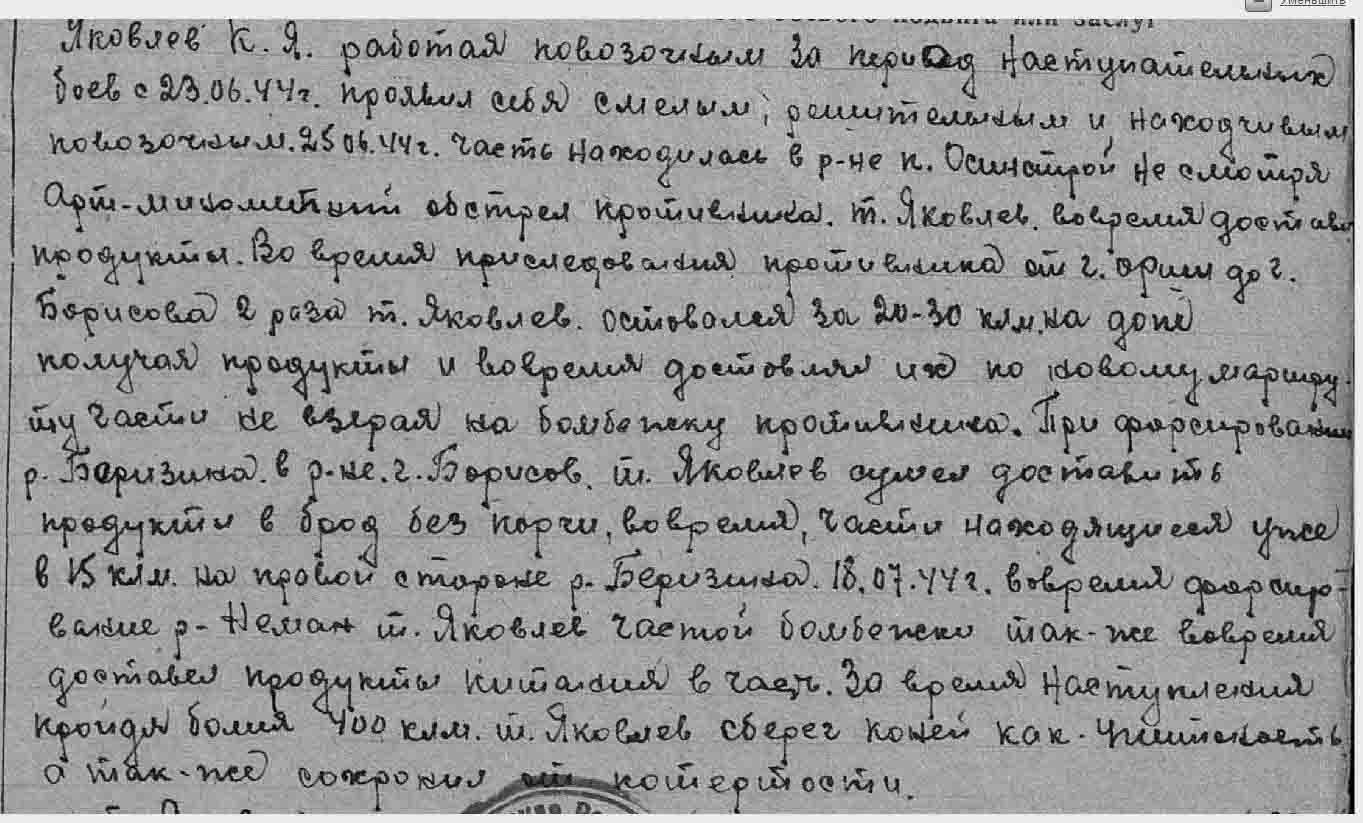 Уменьшить
подвига или заслуг
Яковлев К. Я. работая повозочным за период наступательных
боев с 23.06.44г. проявил себя смелым, решительным и находчивым
повозочным. 25.06.44г. часть находилась в р-не п. Осинстрой не смотря
Арт-минометный обстрел противника. т. Яковлев. вовремя достави
продукты. Во время приследования противника от г. Орши до г.
Борисова 2 раза т. Яковлев. оставался за 20-30 клм. на допе
получая продукты и вовремя доставлял их по новому маршру-
ту части не взерая на бомбежку противника. При форсировании
р. Беризина. в р-не. г. Борисов. т. Яковлев сумел доставить
продукты в брод без порчи, вовремя, части находящиеся уже
в 15 клм. на правой стороне р. Беризина. 18.07.44г. вовремя форсиро-
вание р- Неман т. Яковлев частой бомбежки так-же вовремя
доставел продукты питания в часть. За время наступления
пройдя болия 400 клм. т. Яковлев сберег коней как
а так-же сохронил от потертости.